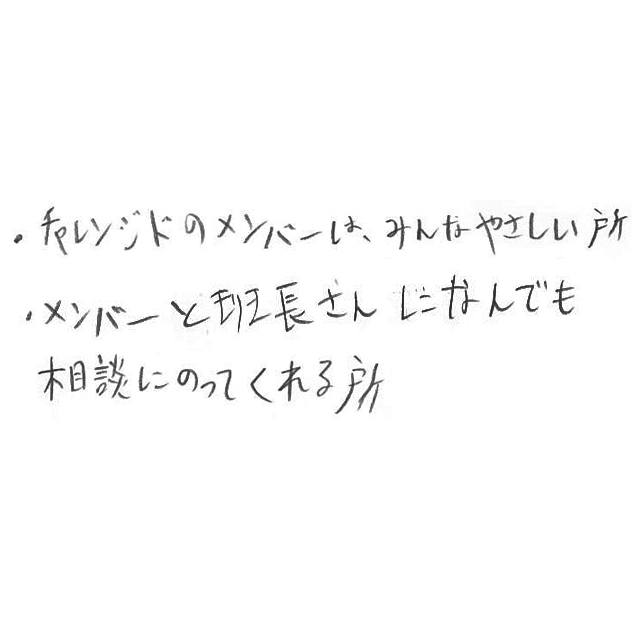 ・チャレンジドのメンバーは、みんなやさしい所
・メンバーと班長さんになんでも
相談にのってくれる所